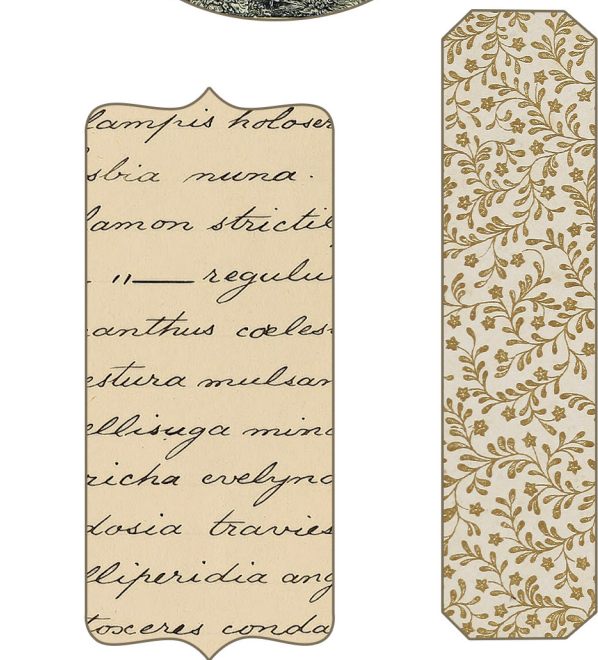 lampis holoser
sbia nuna.
lamon strictil
. "— regulu
anthus cœles-
estura mulsan
ellisuga mini
richa evelyna
dosia travies
lliperidia ang
toxeres conda